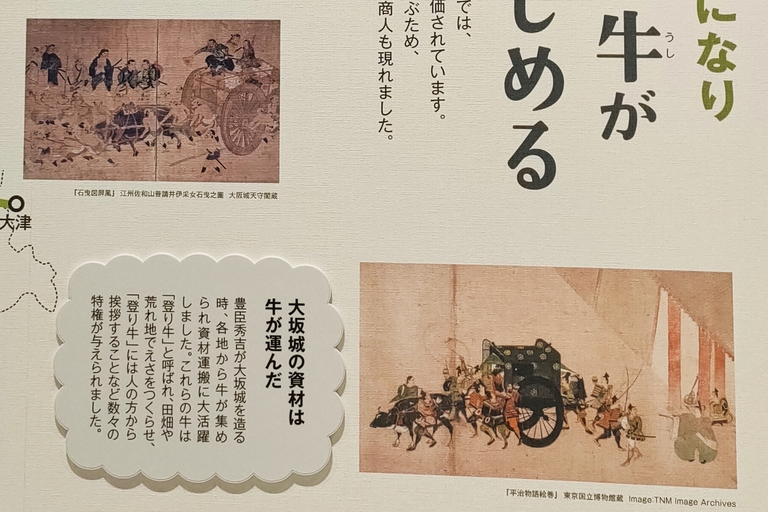 になり
牛が
うし
しめる
では、
価されています。
ぶため、
商人も現れました。
『石曳図屏風』 江州佐和山普請井伊采女石曳之圖 大阪城天守閣蔵
大津
大坂城の資材は
牛が運んだ
豊臣秀吉が大坂城を造る
時、各地から牛が集め
られ資材運搬に大活躍
しました。これらの牛は
「登り牛」と呼ばれ、田畑や
荒れ地でえさをつくらせ、
「登り牛」には人の方から
挨拶することなど数々の
特権が与えられました。
『平治物語絵巻』 東京国立博物館蔵 Image:TNM Image Archives